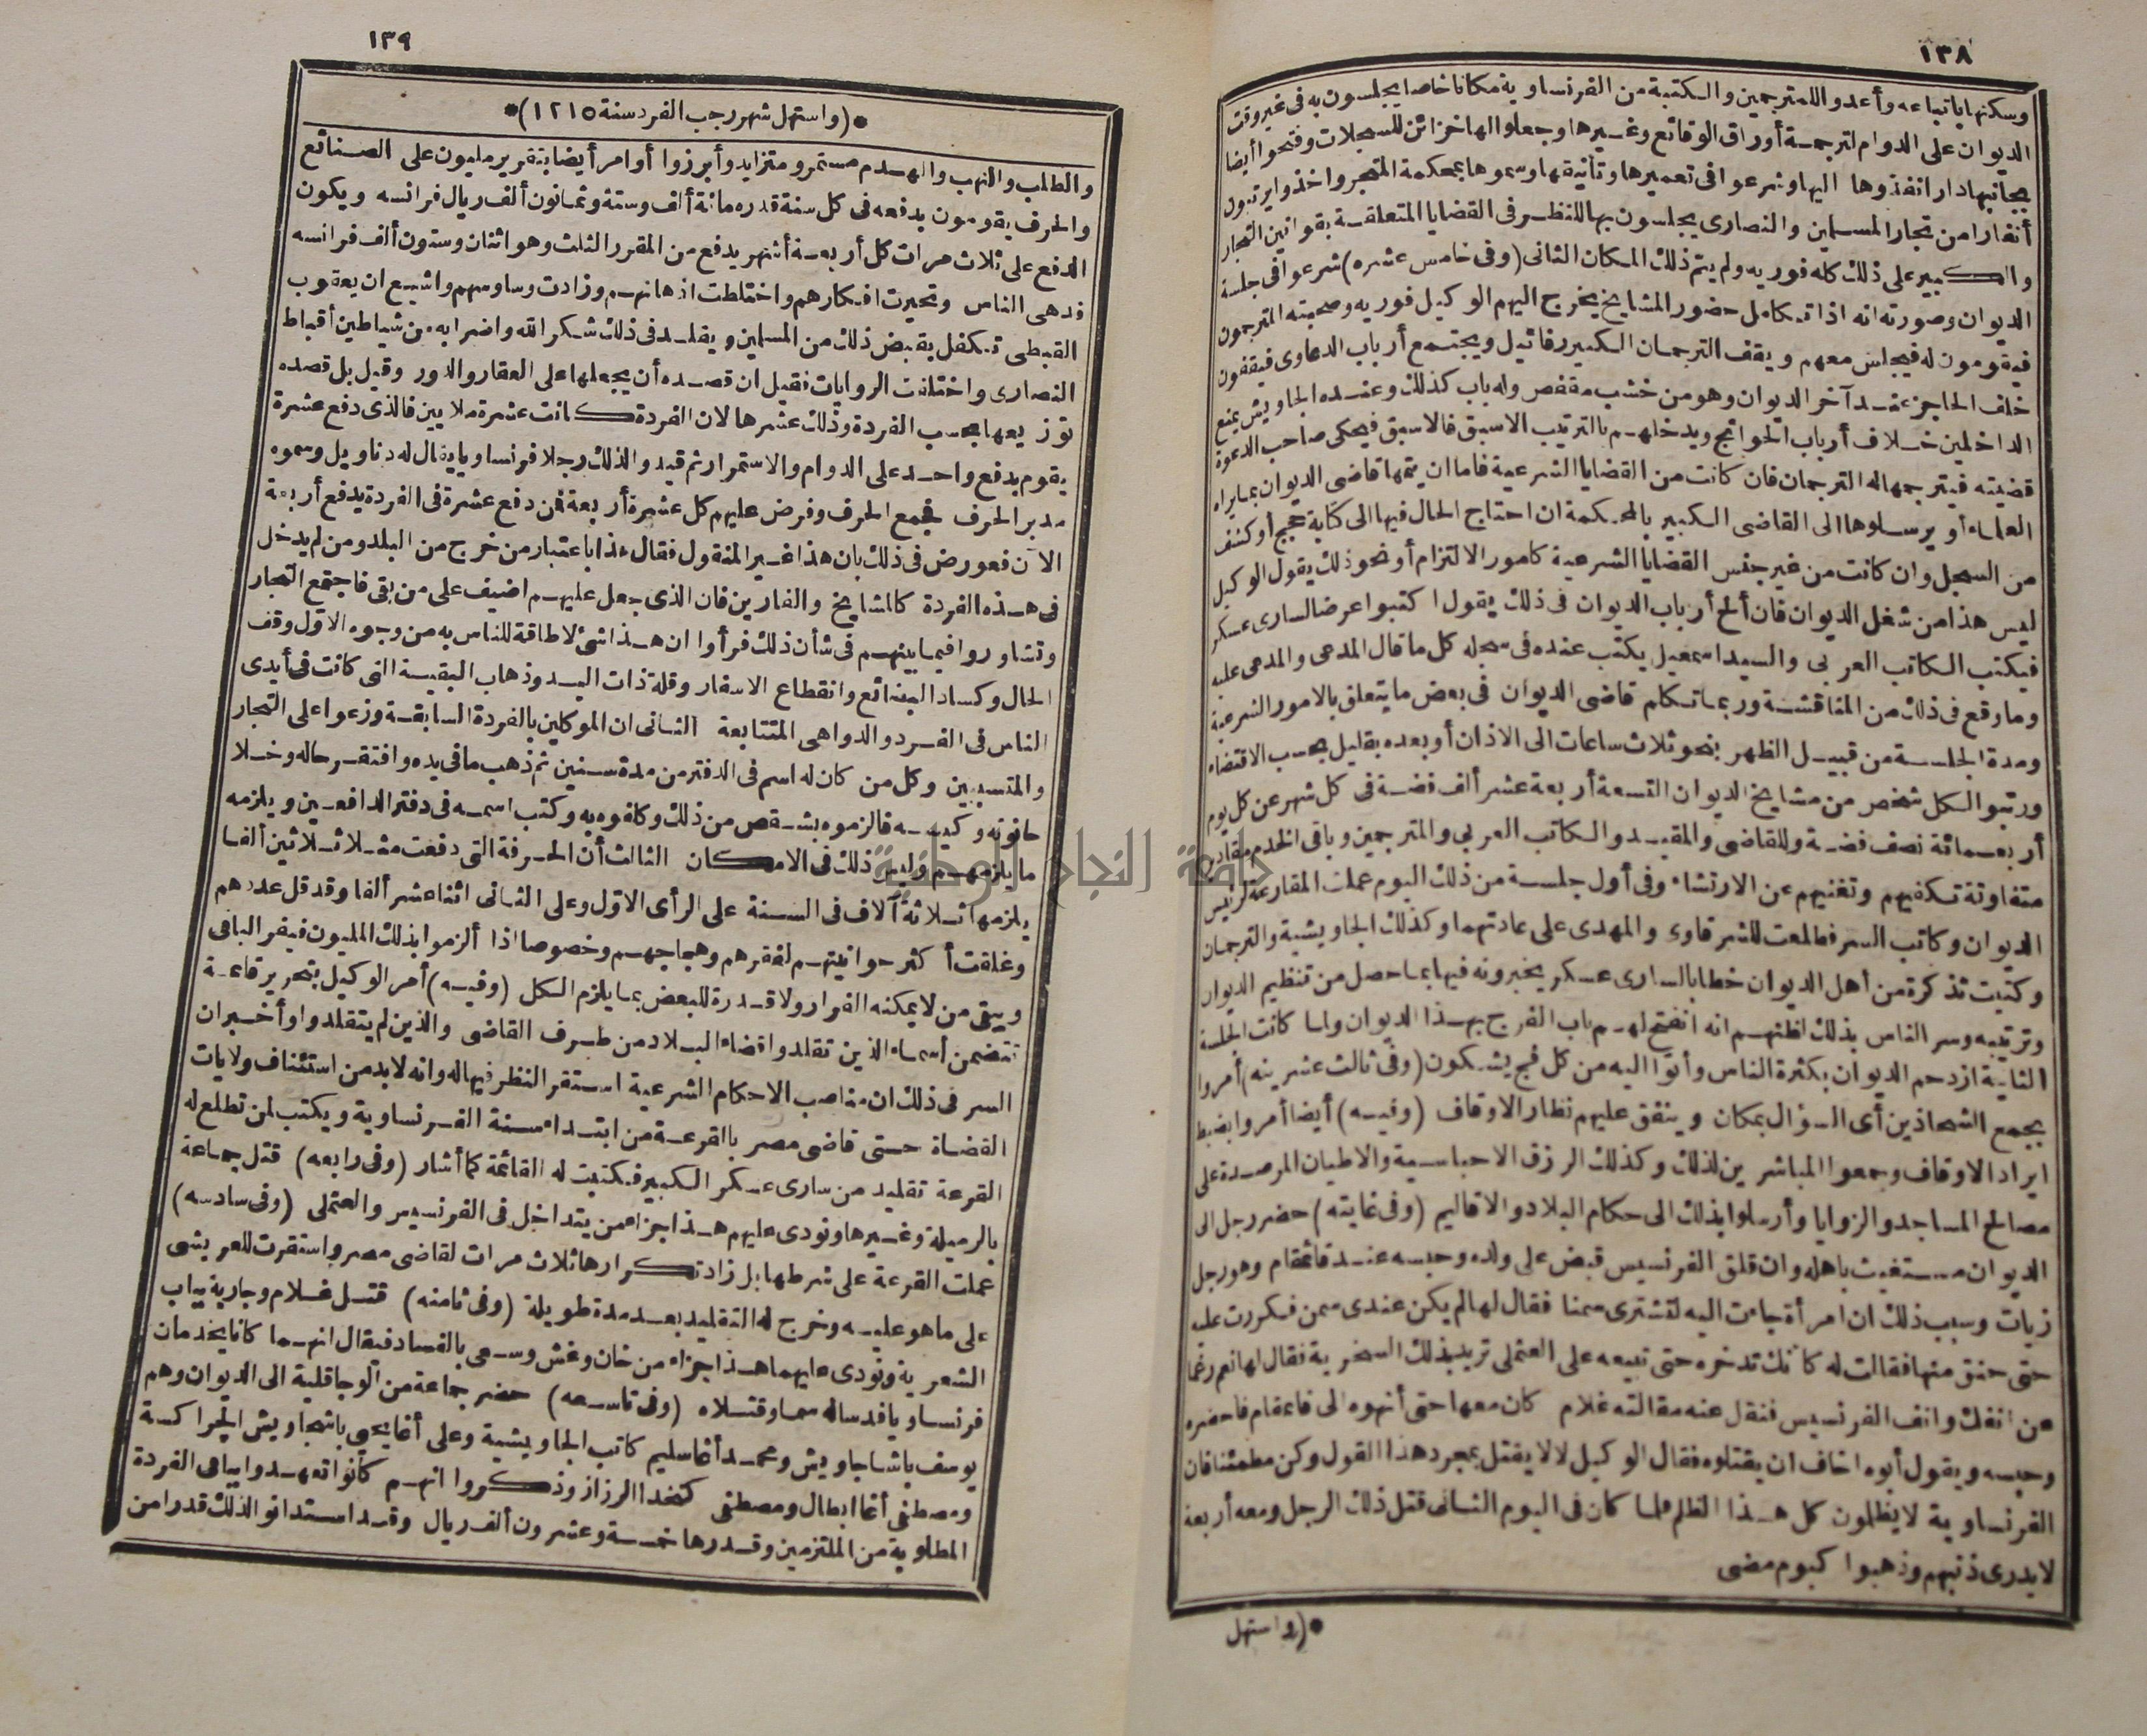 ١٣٨
وسكنها باتباعه وأعدوا للمترجمين والكتبة من الفرنساوية مكانا خاصا يجلسون به فى غير وقت
الديوان على الدوام لترجمة أوراق الوقائع وغيرها وجعلوا لها خزائن للسجلات وفتحوا أيضا
بجانبها دارا نفذوها اليها وشرعوا فى تعميرها وتأنيقها وسموها بمحكمة المتجر واخذوا يرتبون
أنفارا من تجار المسلمين والنصارى يجلسون بها للنظر فى القضايا المتعلقة بقوانين التجار
والكبير على ذلك كله فوريه ولم يتم ذلك المكان الثانى (وفى خامس عشره) شرعوا فى جلسة
الديوان وصورته انه اذا تكامل حضور المشايخ يخرج اليهم الوكيل فوريه وصحبته المترجمون
فيقومون له فيجلس معهم ويقف الترجمان الكبير رفائيل ويجتمع أرباب الدعاوى فيقفون
خلف الحاجز عند آخر الديوان وهو من خشب مقفص وله باب كذلك وعنده الجاويش يمنع
الداخلين خلاف أرباب الحوائج ويدخلهم بالترتيب الاسبق فالاسبق فيحكى صاحب الدعوة
قضيته فيترجمها له الترجمان فان كانت من القضايا الشرعية فاما ان يتمها قاضى الديوان بما يراه
العلماء أو يرسلوها الى القاضى الكبير بالمحكمة ان احتاج الحال فيها الى كتابة حجج أو كشف
من السجل وان كانت من غير جنس القضايا الشرعية كامور الالتزام أو نحو ذلك يقول الوكيل
ليس هذا من شغل الديوان فان ألح أرباب الديوان فى ذلك يقول اكتبوا عرضا لسارى عسكر
فيكتب الكاتب العربى والسيد اسمعيل يكتب عنده فى سجله كل ما قال المدعى والمدعى عليه
وما وقع فى ذلك من المناقشة وربما تكلم قاضى الديوان فى بعض ما يتعلق بالامور الشرعية
ومدة الجلسة من قبيل الظهر بنحو ثلاث ساعات الى الاذان أو بعده بقليل بحسب الاقتضاء
ورتبوا لكل شخص من مشايخ الديوان التسعة أربعة عشر ألف فضة فى كل شهر عن كل يوم
أربعمائة نصف فضة وللقاضى والمقيد والكاتب العربى والمترجمين وباقى الخدم مقادير
متفاوتة تكفيهم وتغنيهم عن الارتشاء وفى أول جلسة من ذلك اليوم عملت المقارعة لرئيس
الديوان وكاتب السر فطلعت للشرقاوى والمهدى على عادتهما وكذلك الجاويشية والترجمان
وكتبت تذكرة من أهل الديوان خطابا لسارى عسكر يخبرونه فيها بما حصل من تنظيم الديوان
وترتيبه وسر الناس بذلك لظنهم انه انفتح لهم باب الفرج بهذا الديوان ولما كانت الجلسة
الثانية ازدحم الديوان بكثرة الناس وأتوا اليه من كل فج يشكون (وفى ثالث عشرينه) أمروا
بجمع الشحاذين أى السؤال بمكان وينفق عليهم نظار الاوقاف (وفيه) أيضا أمروا بضبط
ايراد الاوقاف وجمعوا المباشرين لذلك وكذلك الرزق الاحباسية والاطيان المرصدة على
مصالح المساجد والزوايا وأرسلوا بذلك الى حكام البلاد والاقاليم (وفى غايته) حضر رجل الى
الديوان مستغيث باهله وان قلق الفرنسيس قبض على ولده وحبسه عند قائمقام وهو رجل
زيات وسبب ذلك ان امرأة جاءت اليه لتشترى سمنا فقال لها لم يكن عندى سمن فكررت عليه
حتى حنق منها فقالت له كانك تدخره حتى تبيعه على العثملى تريد بذلك السخرية فقال لها نعم رغما
عن انفك وانف الفرنسيس فنقل عنه مقالته غلام كان معها حتى أنهوه الى قائمقام فاحضره
وحبسه ويقول أبوه اخاف ان يقتلوه فقال الوكيل لا لا يقتل بمجرد هذا القول وكن مطمئنا فان
الفرنساوية لا يظلمون كل هذا الظلم فلما كان فى اليوم الثانى قتل ذلك الرجل ومعه أربعة
لا يدرى ذنبهم وذهبوا كيوم مضى
*(واستهل
١٣٩
*(واستهل شهر رجب الفرد سنة ١٢١٥)*
والطلب والنهب والهدم مستمر ومتزايد وأبرزوا أوامر أيضا بتقرير مليون على الصنائع
والحرف يقومون بدفعه فى كل سنة قدره مائة ألف وستة وثمانون ألف ريال فرانسه ويكون
الدفع على ثلاث مرات كل أربعة أشهر يدفع من المقرر الثلث وهو اثنان وستون ألف فرانسه
فدهى الناس وتحيرت افكارهم واختلطت اذهانهم وزادت وساوسهم واشيع ان يعقوب
القبطى تكفل بقبض ذلك من المسلمين ويقلد فى ذلك شكر الله واضرابه من شياطين أقباط
النصارى واختلفت الروايات فقيل ان قصده أن يجعلها على العقار والدور وقيل بل قصده
توزيعها بحسب الفردة وذلك عشرها لان الفردة كانت عشرة ملايين فالذى دفع عشرة
يقوم بدفع واحد على الدوام والاستمرار ثم قيدوا لذلك رجلا فرنساويا يقال له دناويل وسموه
مدبر الحرف فجمع الحرف وفرض عليهم كل عشرة أربعة فمن دفع عشرة فى الفردة يدفع أربعة
الآن فعورض فى ذلك بان هذا غير المنقول فقال هذا باعتبار من خرج من البلد ومن لم يدخل
فى هذه الفردة كالمشايخ والفارين فان الذى جعل عليهم اضيف على من بقى فاجتمع التجار
وتشاوروا فيما بينهم فى شأن ذلك فرأوا ان هذا شئ لا طاقة للناس به من وجوه الاول وقف
الحال وكساد البضائع وانقطاع الاسفار وقلة ذات اليد وذهاب البقية التى كانت فى أيدى
الناس فى الفرد والدواهى المتتابعة الثانى ان الموكلين بالفردة السابقة وزعوا على التجار
والمتسببين وكل من كان له اسم فى الدفتر من مدة سنين ثم ذهب ما فى يده وافتقر حاله وخلا
حانوته وكيسه فالزموه بشقص من ذلك وكلفوه به وكتب اسمه فى دفتر الدافعين ويلزمه
ما يلزمهم وليس ذلك فى الامكان الثالث أن الحرفة التى دفعت مثلا ثلاثين ألفا
يلزمها ثلاثة آلاف فى السنة على الرأى الاول وعلى الثانى اثنا عشر ألفا وقد قل عددهم
وغلقت أكثر حوانيتهم لفقرهم وهجاجهم وخصوصا اذا ألزموا بذلك المليون فيفر الباقى
ويبقى من لا يمكنه الفرار ولا قدرة للبعض بما يلزم الكل (وفيه) أمر الوكيل بتحرير قائمة
تتضمن أسماء الذين تقلدوا قضاء البلاد من طرف القاضى والذين لم يتقلدوا وأخبر ان
السر فى ذلك ان مناصب الاحكام الشرعية استقر النظر فيها له وانه لابد من استئناف ولايات
القضاة حتى قاضى مصر بالقرعة من ابتداء سنة الفرنساوية ويكتب لمن تطلع له
القرعة تقليد من سارى عسكر الكبير فكتبت له القائمة كما أشار (وفى رابعه) قتل جماعة
بالرميلة وغيرها ونودى عليهم هذا جزاء من يتداخل فى الفرنسيس والعثملى (وفى سادسه)
عملت القرعة على شرطها بل زاد تكرارها ثلاث مرات لقاضى مصر واستقرت للعريشى
على ما هو عليه وخرج له التقليد بعد مدة طويلة (وفى ثامنه) قتل غلام وجارية بباب
الشعرية ونودى عليهما هذا جزاء من خان وغش وسعى بالفساد فيقال انهما كانا يخدمان
فرنساويا فدساله سما وقتلاه (وفى تاسعه) حضر جماعة من الوجاقلية الى الديوان وهم
يوسف باشا جاويش ومحمد أغا سليم كاتب الجاويشية وعلى أغا يحيى باشجاويش الجراكسة
ومصطفى أغا ابطال ومصطفى كتخدا الرزاز وذكروا انهم كانوا تعهدوا بباقى الفردة
المطلوبة من الملتزمين وقدرها خمسة وعشرون ألف ريال وقد استدانوا لذلك قدرا من